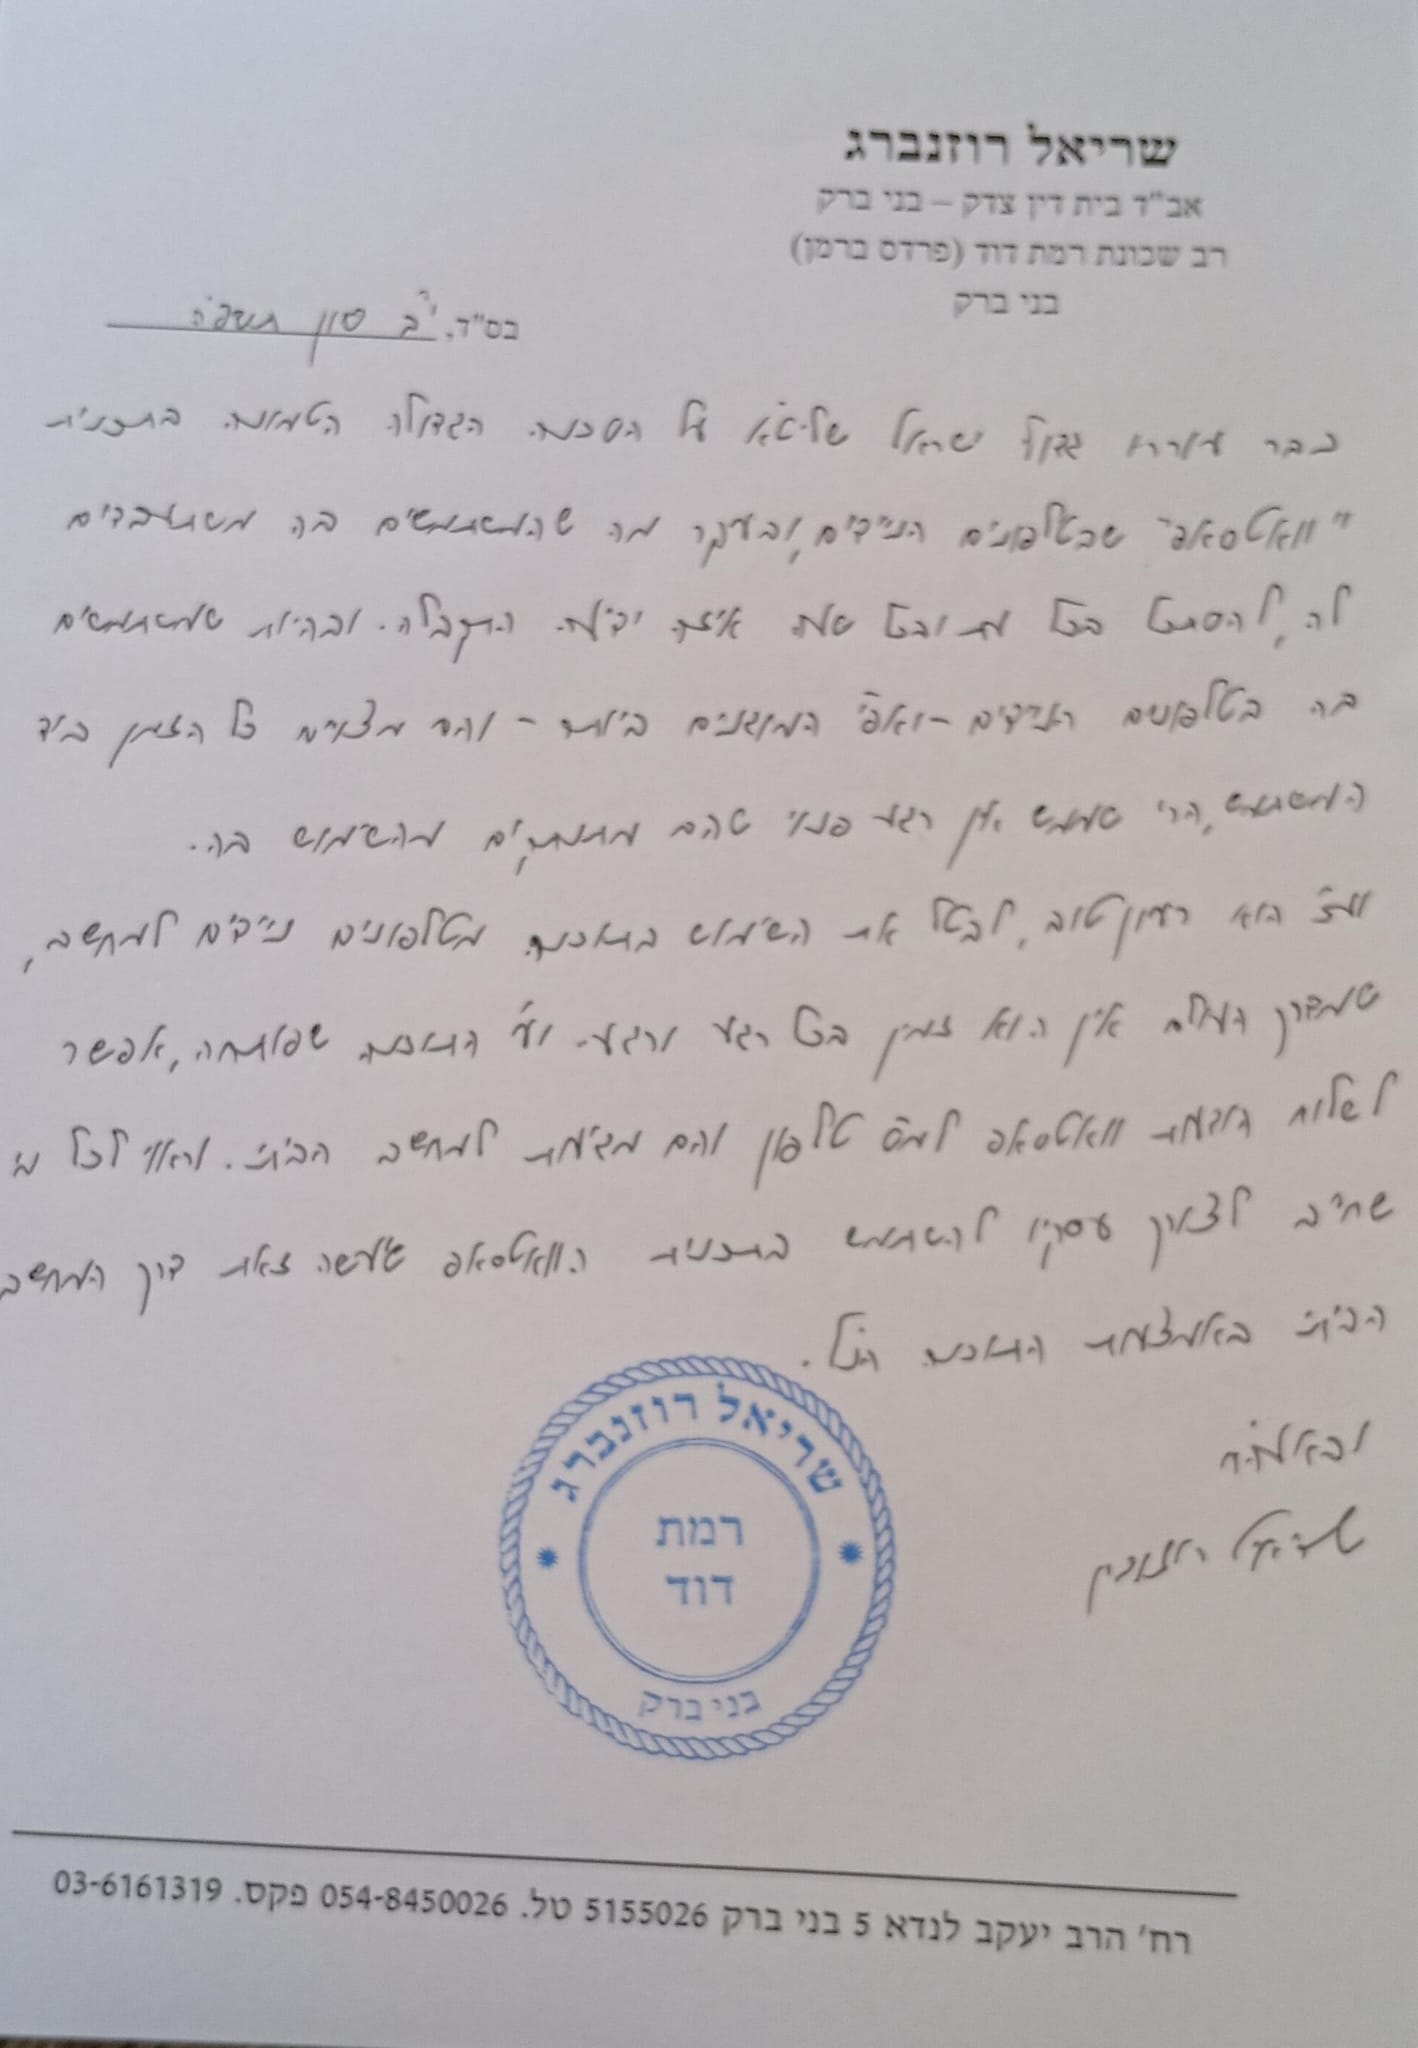 שריאל רוזנברג
אב"ד בית דין צדק – בני ברק
רב שכונת רמת דוד (פרדס ברמן)
בני ברק
בס"ד, י"ב סיון תשפ"ה
כבר עוררו גדולי ישראל שליט"א על הסכנה הגדולה הטמונה בתכנית
"וואטסאפ" שבטלפונים הניידים, ובעקר מה שהמשתמשים בה משתעבדים
לה, להסתכל בכל עת ובכל שעה איזה ידיעה התקבלה. ובהיות שמשתמשים
בה בטלפונים הניידים - ואפי' המוגנים ביותר - והם מצויים כל הזמן ביד
המשתמש, הרי שממש אין רגע פנוי שהם מתנתקים מהשימוש בה.
וע"כ הוא רעיון טוב, לבטל את השימוש בתוכנה מטלפונים ניידים למחשב,
שמדרך העולם אין הוא זמין בכל רגע ורגע. וע"י התוכנה שפותחה, אפשר
לשלוח הודעות וואטסאפ למס' טלפון והם מגיעות למחשב הביתי. וראוי לכל מי
שחייב לצורך עסקיו להשתמש בתכנית הוואטסאפ שיעשה זאת דרך המחשב
הביתי באמצעות התוכנה הנ"ל.
ובאעה"ח
שריאל רוזנברג
שריאל רוזנברג
רמת
דוד
בני ברק
רח' הרב יעקב לנדא 5 בני ברק 5155026 טל. 054-8450026 פקס. 03-6161319